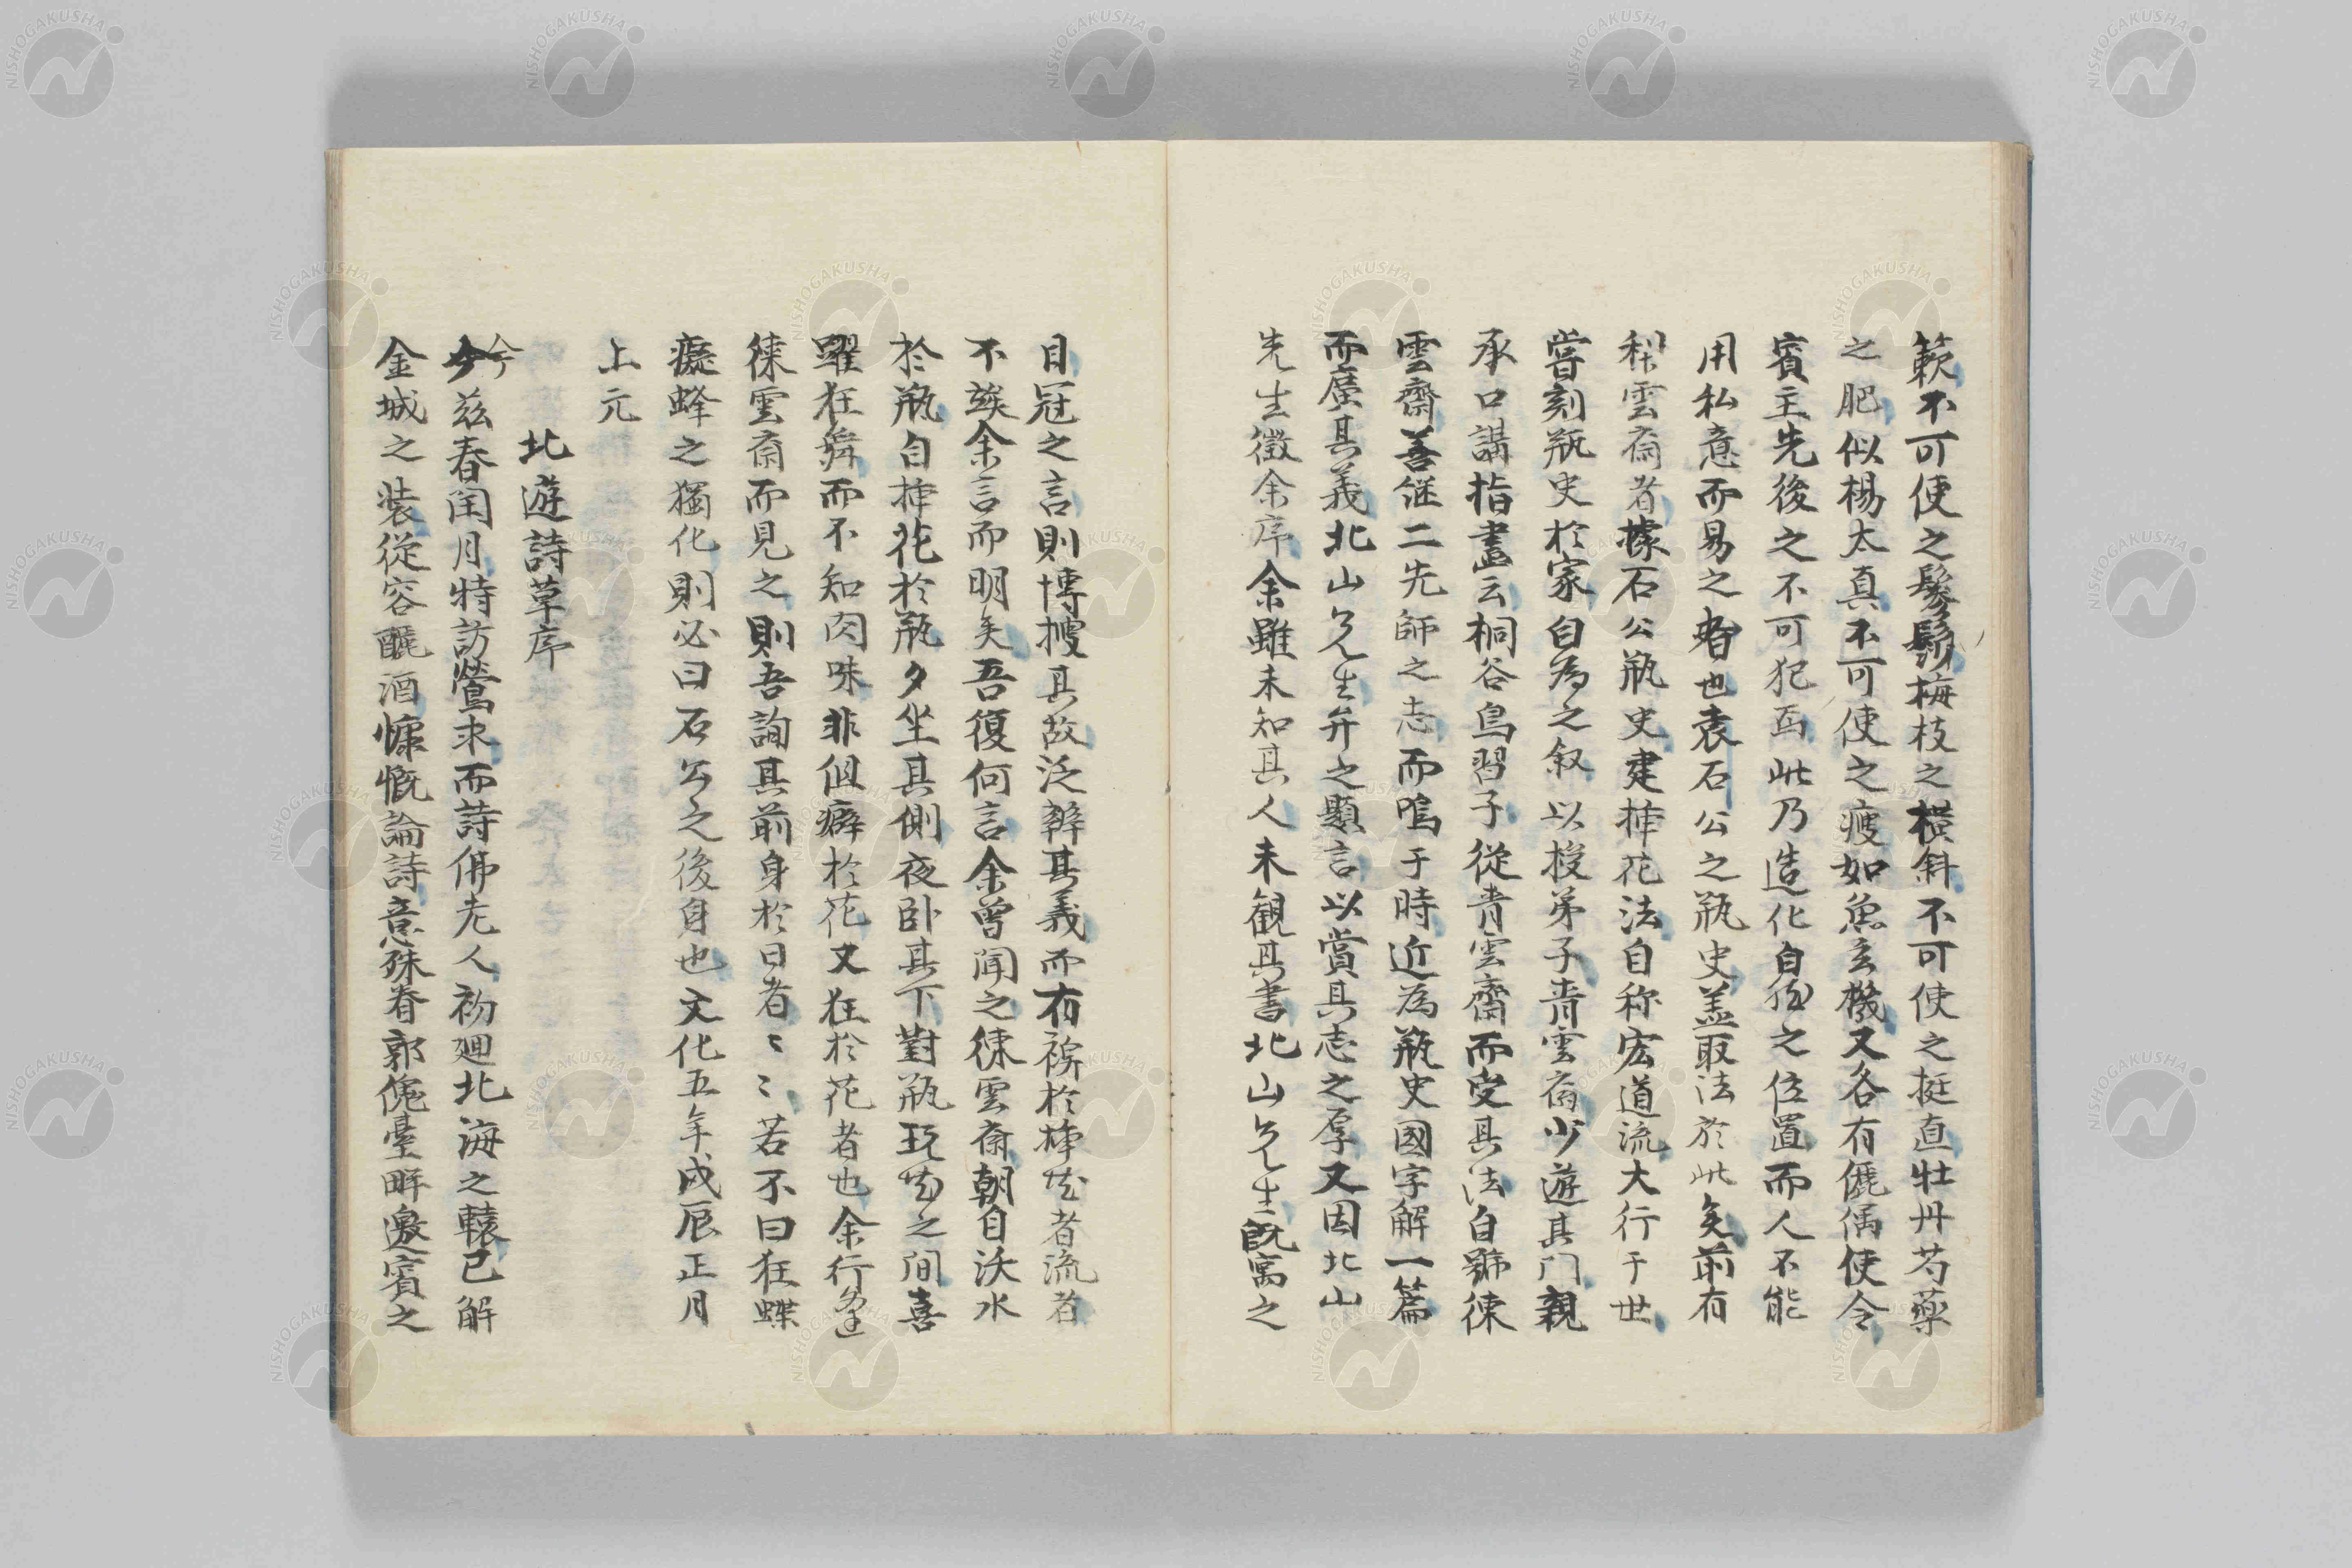 簌不可使之鬖鬖梅枝之橫斜不可使之挺直牡丹芍藥
之肥似楊太真不可使之瘦如魚玄機又各有儷偶使令
賓主先後之不可犯而此乃造化自然之位置而人不能
用私意而易之者也袁石公之瓶史盖取法於此矣前有
梨雲齋者據石公瓶史建揷花法自称宏道流大行于世
嘗刻瓶史於家自為之叙以授弟子青雲齋少遊其門親
承口講指畫云桐谷鳥習子從青雲齋而受其法自號徠
雲齋善継二先師之志而鳴于時近為瓶史國字解一篇
而廣其義北山先生弁之題言以賞其志之厚又因北山
先生徵余序余雖未知其人未観其書北山先生既寓之
目冠之言則博捜其故泛辨其義而有裨於揷花者流者
不竢余言而明矣吾復何言余曽聞之徠雲齋朝自沃水
於瓶自揷花於瓶夕坐其側夜卧其下對瓶玩花之間喜
躍狂舞而不知肉味非但癖於花又狂於花者也余行逢
徠雲齋而見之則吾詢其前身於曰者〻〻若不曰狂蝶
癡蜂之獨化則必曰石公之後身也文化五年戊辰正月
上元
北遊詩草序
今兹春閏月特訪鶯求而詩佛老人初廻北海之轅已解
金城之装從容釃酒慷慨論詩意殊眷郭隗臺畔邀賓之
今
NISHOGAKUSHA